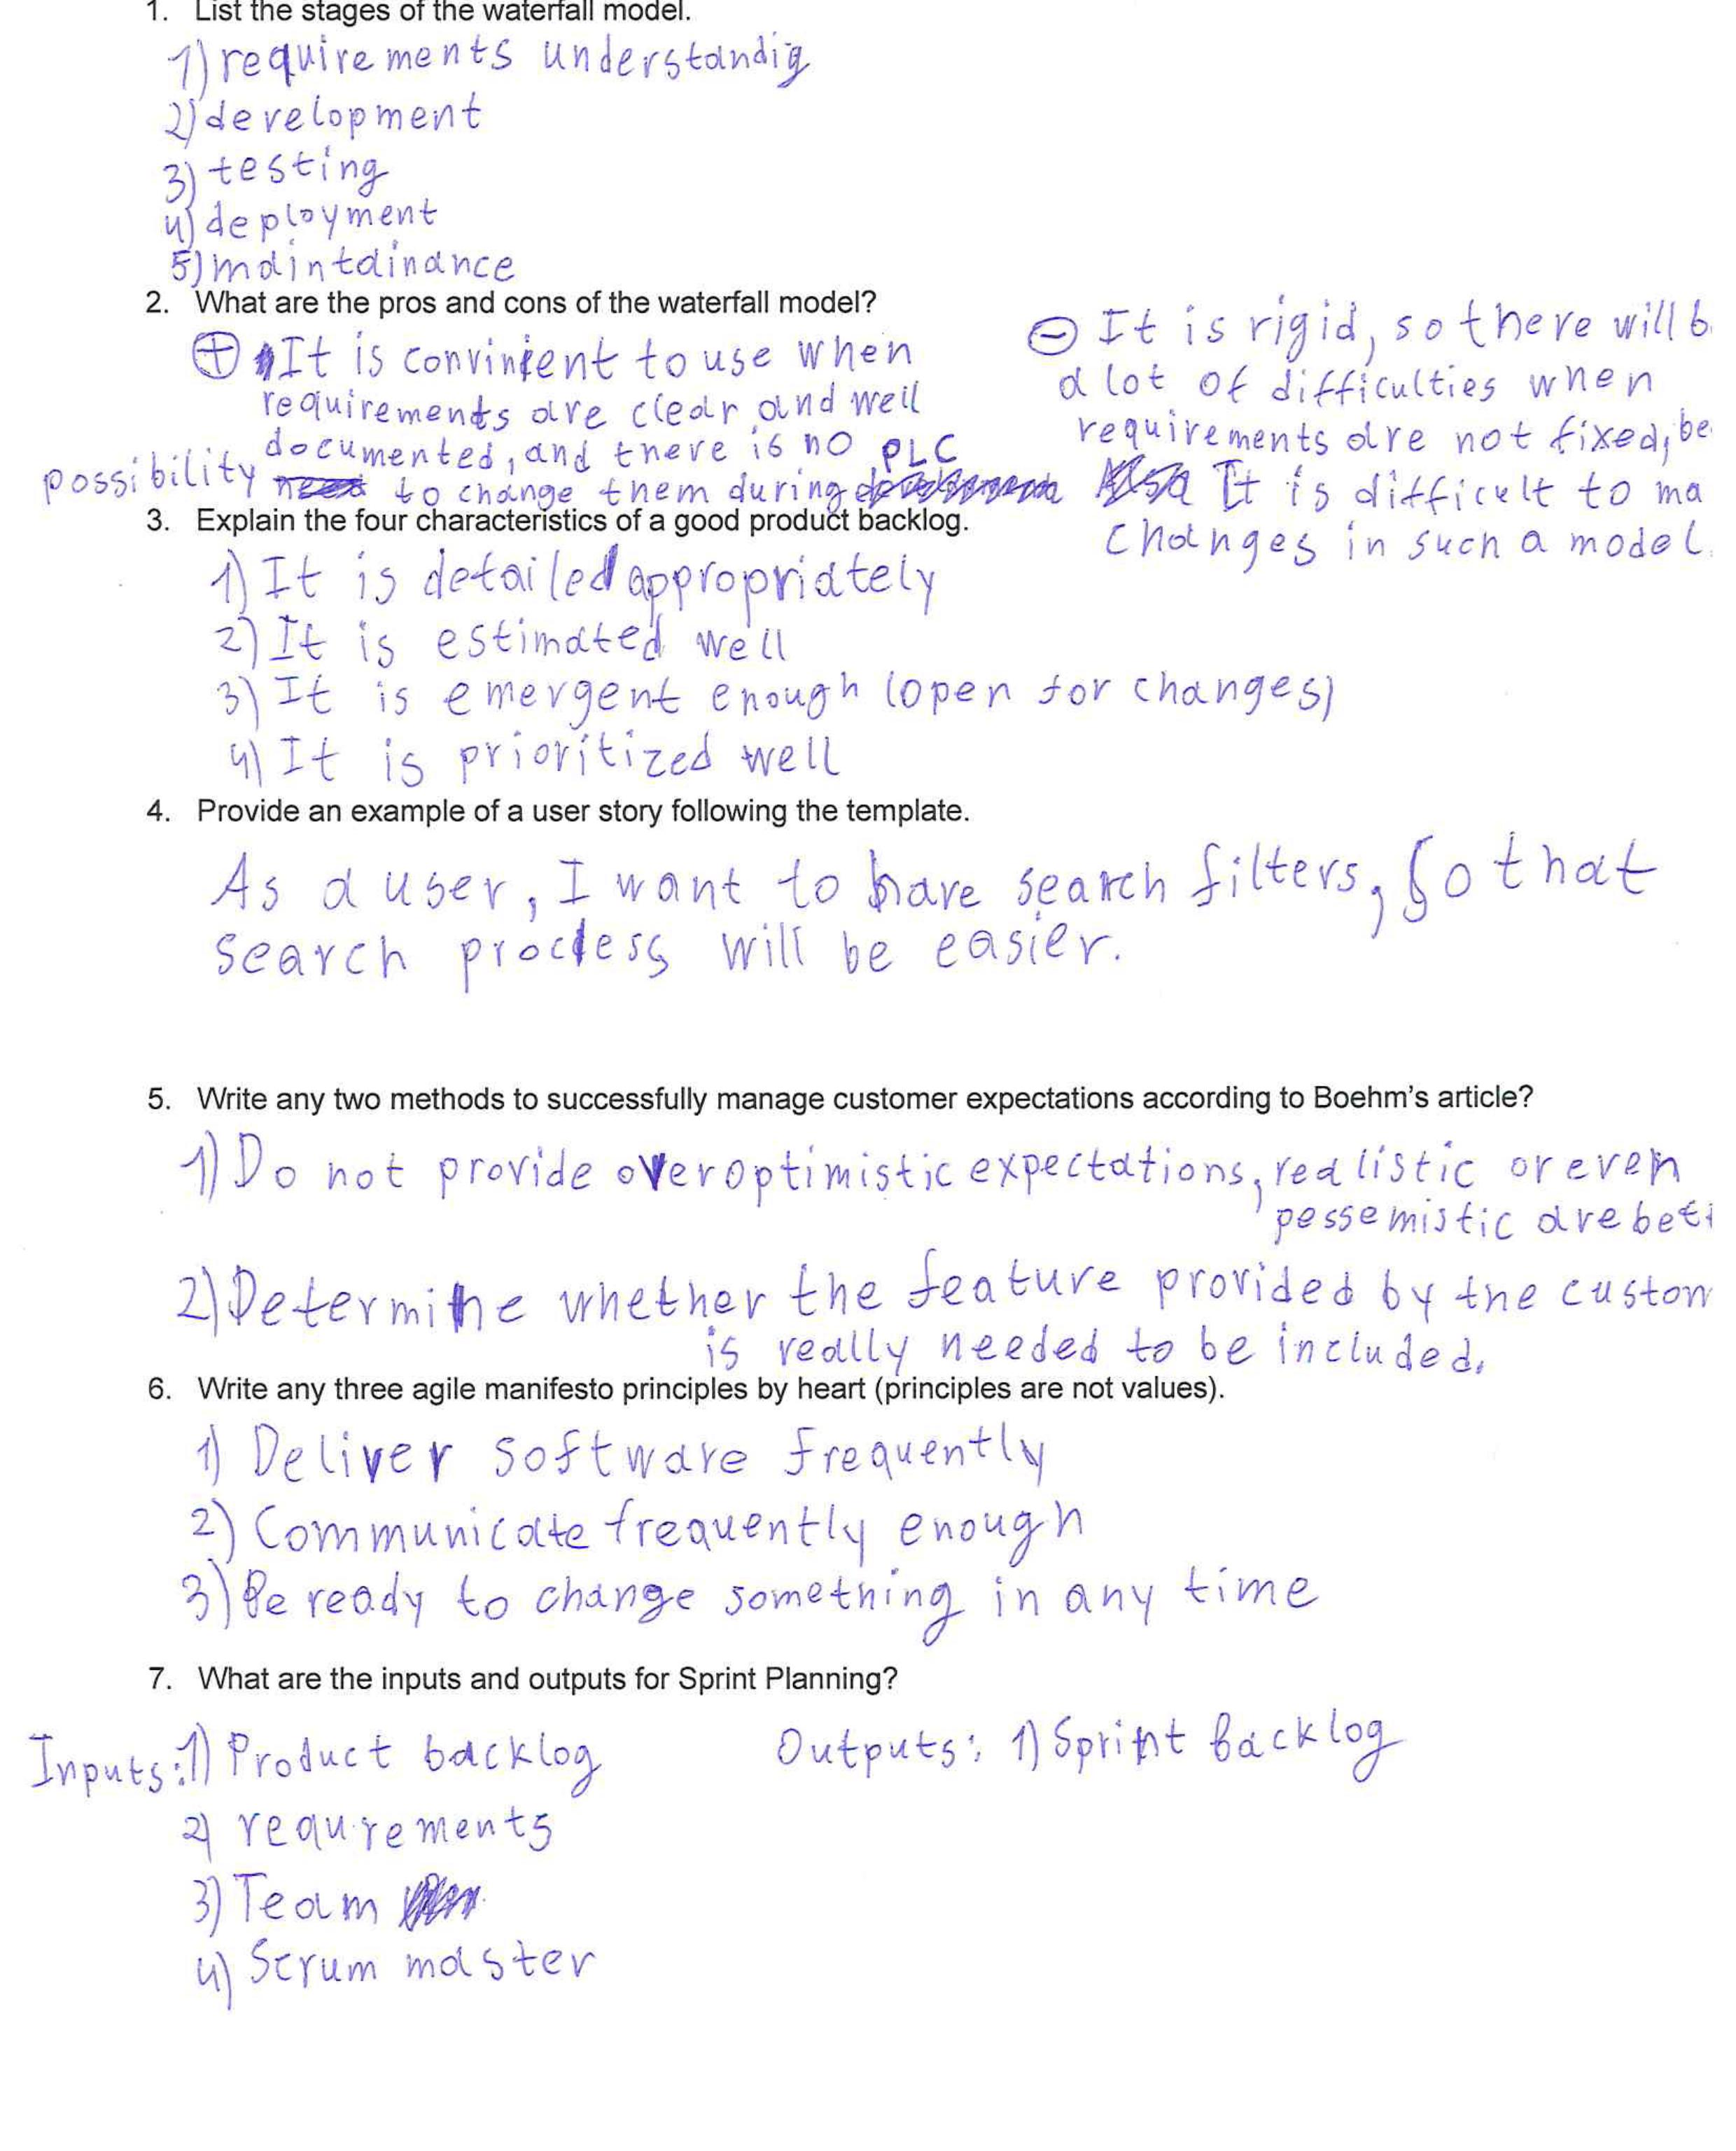 1. List the stages of the waterfall model.
1) requirements understandig
2) development
3) testing
4) deployment
5) maintainance
2. What are the pros and cons of the waterfall model?
⊕ It is convinient to use when
requirements are clear and well
documented, and there is no PLC
possibility to change them during
⊖ It is rigid, so there will b
a lot of difficulties when
requirements are not fixed, be
It is difficult to ma
changes in such a model.
3. Explain the four characteristics of a good product backlog.
1) It is detailed appropriately
2) It is estimated well
3) It is emergent enough (open for changes)
4) It is prioritized well
4. Provide an example of a user story following the template.
As a user, I want to have search filters, so that
search process will be easier.
5. Write any two methods to successfully manage customer expectations according to Boehm's article?
1) Do not provide overoptimistic expectations, realistic or even
pessemistic are bett
2) Determine whether the feature provided by the custom
is really needed to be included.
6. Write any three agile manifesto principles by heart (principles are not values).
1) Deliver software frequently
2) Communicate frequently enough
3) Be ready to change something in any time
7. What are the inputs and outputs for Sprint Planning?
Inputs: 1) Product backlog
2) requrements
3) Team
4) Scrum master
Outputs: 1) Sprint backlog